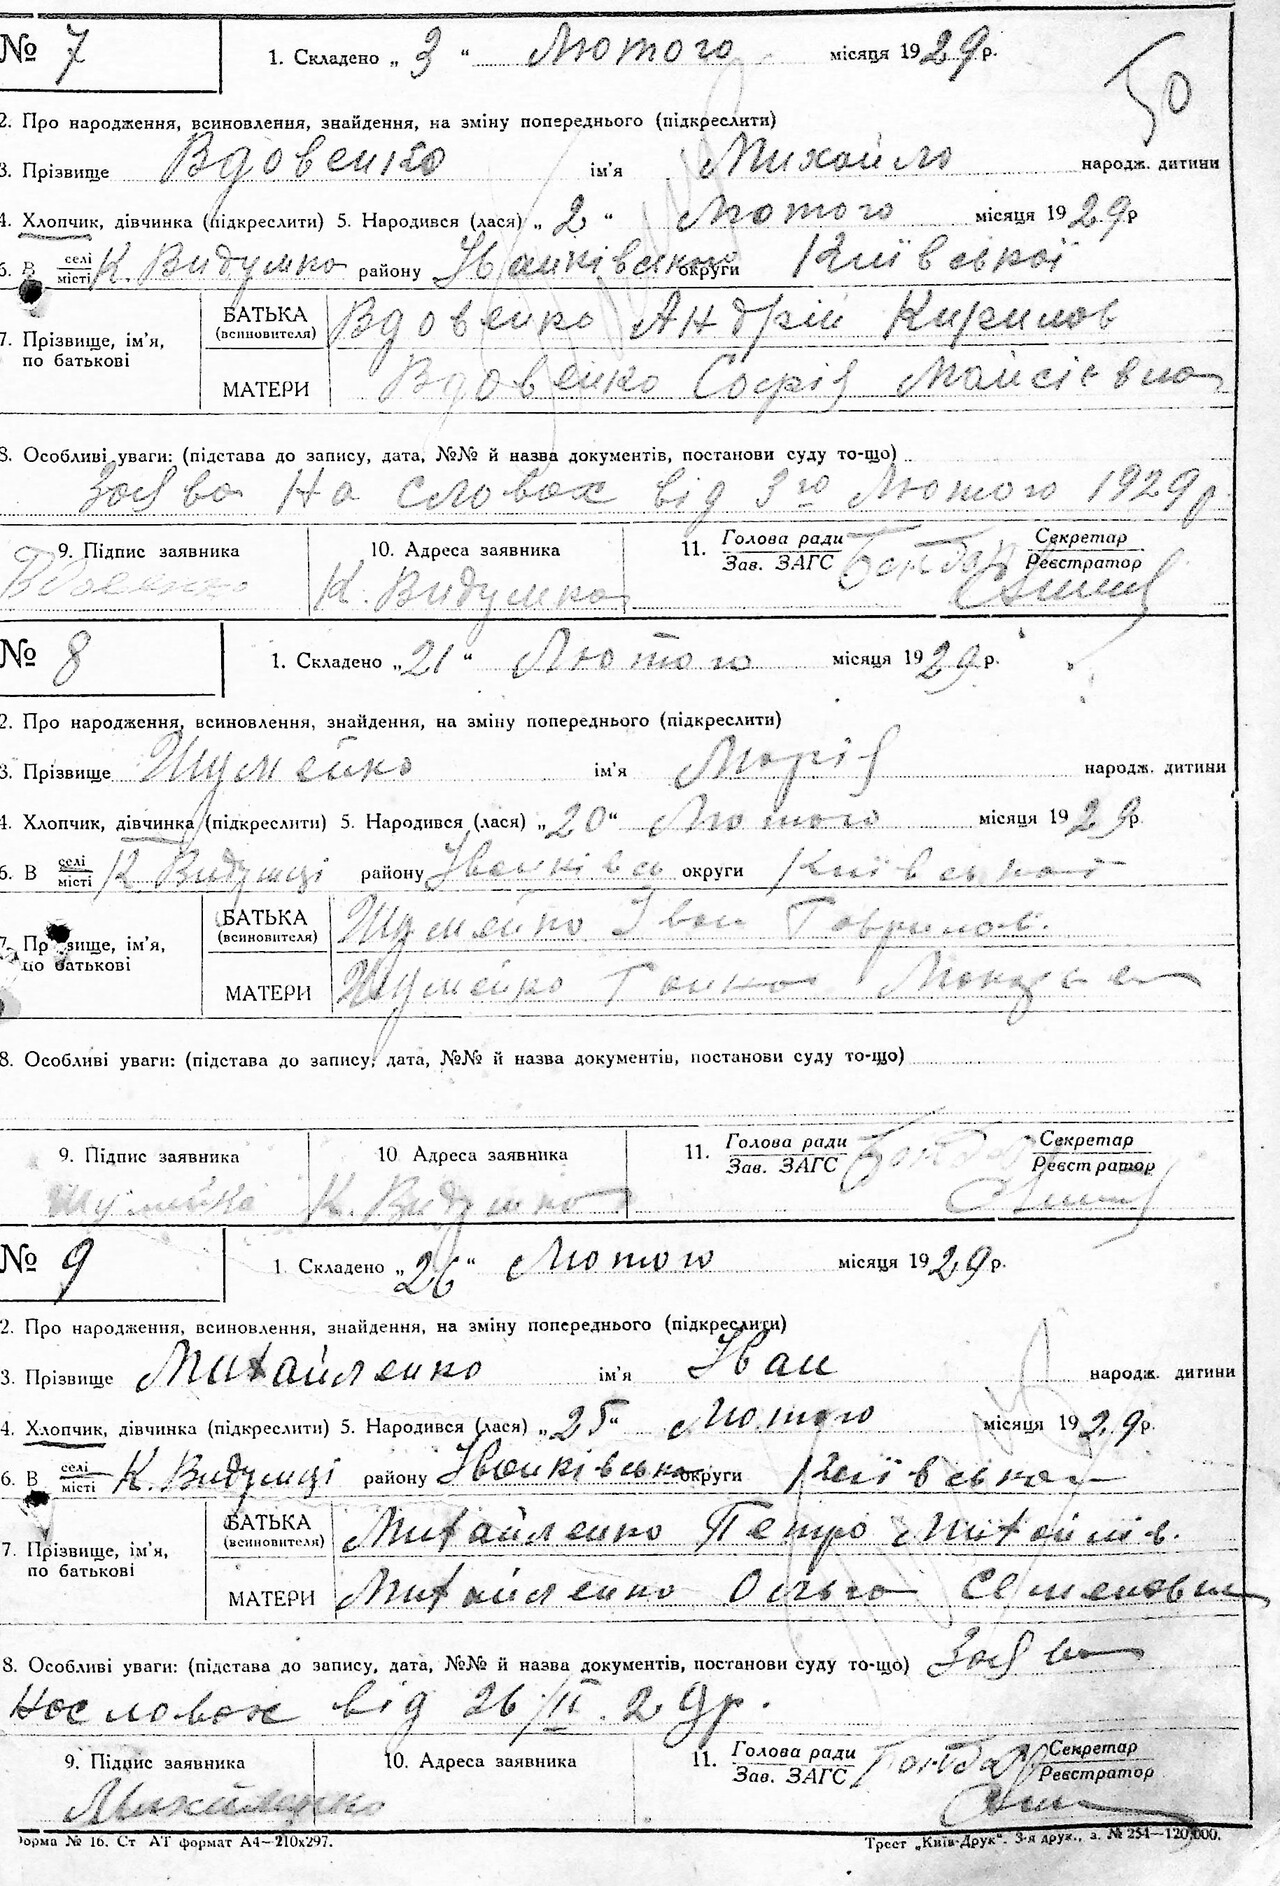 № 7 1. Складено „ 3 “ Лютого місяця 1929 р.
50
2. Про народження, всиновлення, знайдення, на зміну попереднього (підкреслити)
3. Прізвище Вдовенко ім'я Михайло народж. дитини
4. Хлопчик, дівчинка (підкреслити) 5. Народився (лася) „ 2 “ Лютого місяця 1929 р
6. В селі/місті К. Видумка району Іванківського округи Київської
7. Прізвище, ім'я, по батькові БАТЬКА (всиновителя) Вдовенко Андрій Кирилов
МАТЕРИ Вдовенко Софія Мойсієвна
8. Особливі уваги: (підстава до запису, дата, №№ й назва документів, постанови суду то-що)
Заява На словах від 3го Лютого 1929 р.
9. Підпис заявника 10. Адреса заявника 11. Голова ради/Зав. ЗАГС Бондар Секретар/Реєстратор
Вдовенко К. Видумка
№ 8 1. Складено „ 21 “ Лютого місяця 1929 р.
2. Про народження, всиновлення, знайдення, на зміну попереднього (підкреслити)
3. Прізвище Шумейко ім'я Марія народж. дитини
4. Хлопчик, дівчинка (підкреслити) 5. Народився (лася) „ 20 “ Лютого місяця 1929 р.
6. В селі/місті К. Видумці району Іванківськ округи Київської
7. Прізвище, ім'я, по батькові БАТЬКА (всиновителя) Шумейко Іван Гаврилов.
МАТЕРИ Шумейко Ганна
8. Особливі уваги: (підстава до запису, дата, №№ й назва документів, постанови суду то-що)
9. Підпис заявника 10 Адреса заявника 11. Голова ради/Зав. ЗАГС Бондар Секретар/Реєстратор
Шумейко К. Видумка
№ 9 1. Складено „ 26 “ Лютого місяця 1929 р.
2. Про народження, всиновлення, знайдення, на зміну попереднього (підкреслити)
3. Прізвище Михайленко ім'я Іван народж. дитини
4. Хлопчик, дівчинка (підкреслити) 5. Народився (лася) „ 25 “ Лютого місяця 1929 р.
6. В селі/місті К. Видумці району Іванківсько округи Київської
7. Прізвище, ім'я, по батькові БАТЬКА (всиновителя) Михайленко Петро Михайлів.
МАТЕРИ Михайленко Ольга Семеновна
8. Особливі уваги: (підстава до запису, дата, №№ й назва документів, постанови суду то-що) Заява
На словах від 26/II. 29р.
9. Підпис заявника 10. Адреса заявника 11. Голова ради/Зав. ЗАГС Бондар Секретар/Реєстратор
Михайленко
Форма № 16. Ст АТ формат А4—210х297. Трест „Київ-Друк“. 3-я друк., з. № 254—120,000.